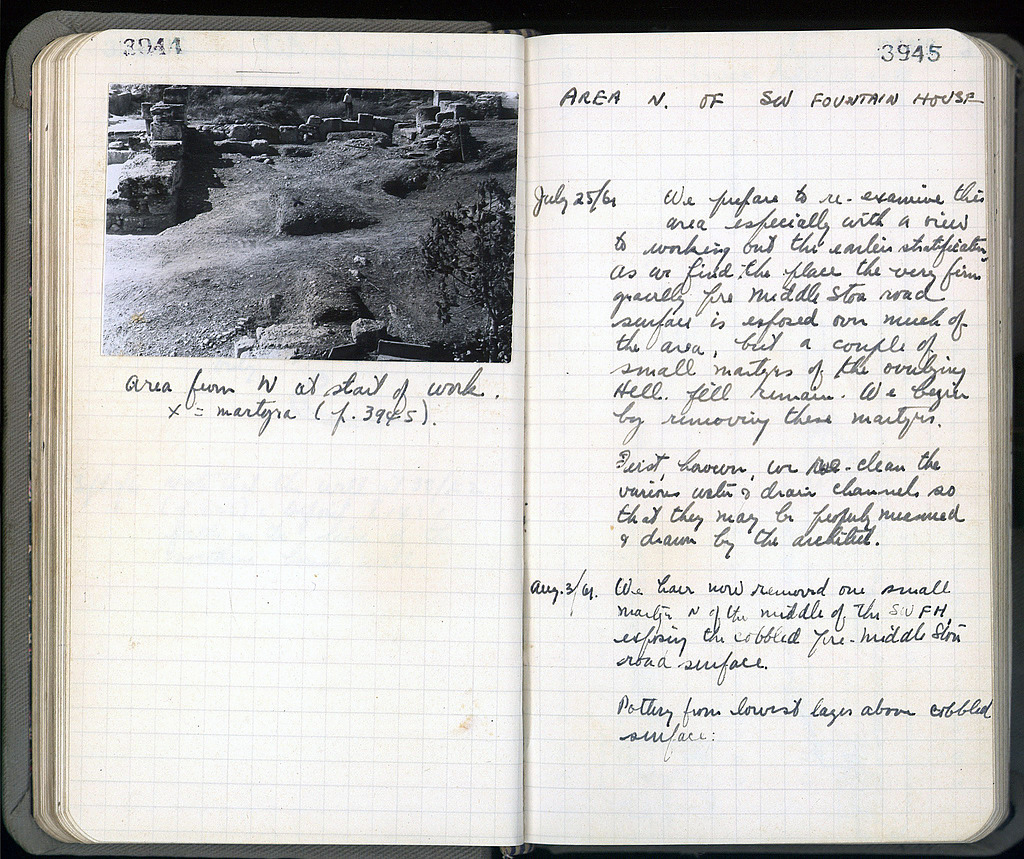 3944
Area from W at start of work.
x = martyra (p. 3945).
3945
AREA N. OF SW FOUNTAIN HOUSE
July 25/61 We prepare to re-examine this
area especially with a view
to working out the earlier stratification.
As we find the place the very firm
gravelly pre Middle Stoa road
surface is exposed over much of
the area, but a couple of
small martyrs of the overlying
Hell. fill remain. We begin
by removing these martyrs.
First, however, we re-clean the
various water & drain channels so
that they may be properly measured
& drawn by the architect.
Aug. 3/61. We have now removed one small
martyr N of the middle of the SW FH,
exposing the cobbled pre-Middle Stoa
road surface.
Pottery from lowest layer above cobbled
surface: